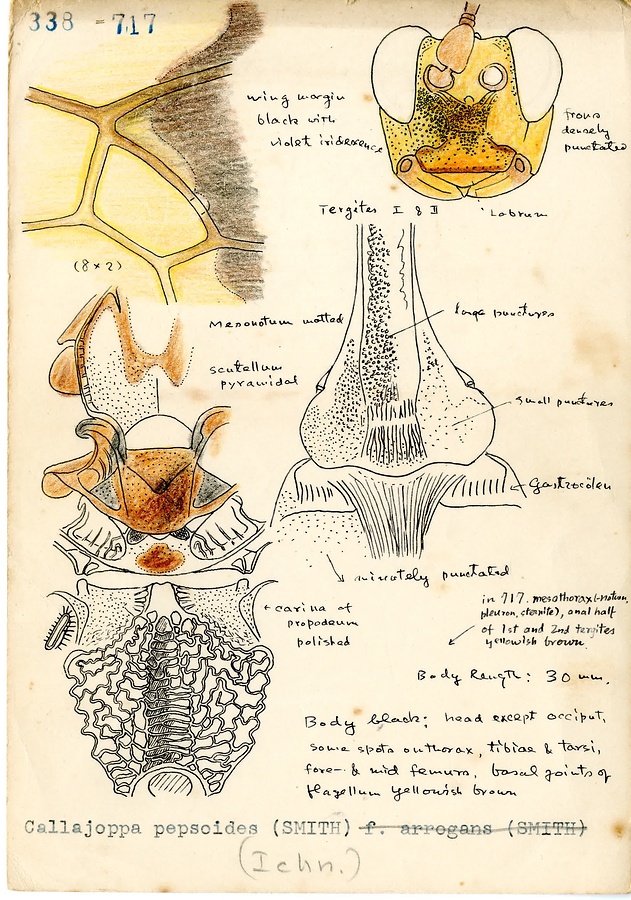 338 - 717
wing margin
black with
violet iridescence
frons
densely
punctated
Labrum
Tergites I & II
(8 x 2)
Mesonotum matted
large punctures
scutellum
pyramidal
small punctures
Gastrocölen
minutely punctated
carina of
propodeum
polished
in 717. mesothorax (-notum,
pleuron, sternite), anal half
of 1st and 2nd tergites
yellowish brown.
Body length: 30 mm.
Body black; head except occiput,
some spots on thorax, tibiae & tarsi,
fore- & mid femurs, basal joints of
flagellum yellowish brown
Callajoppa pepsoides (SMITH) f. arrogans (SMITH)
(Ichn.)